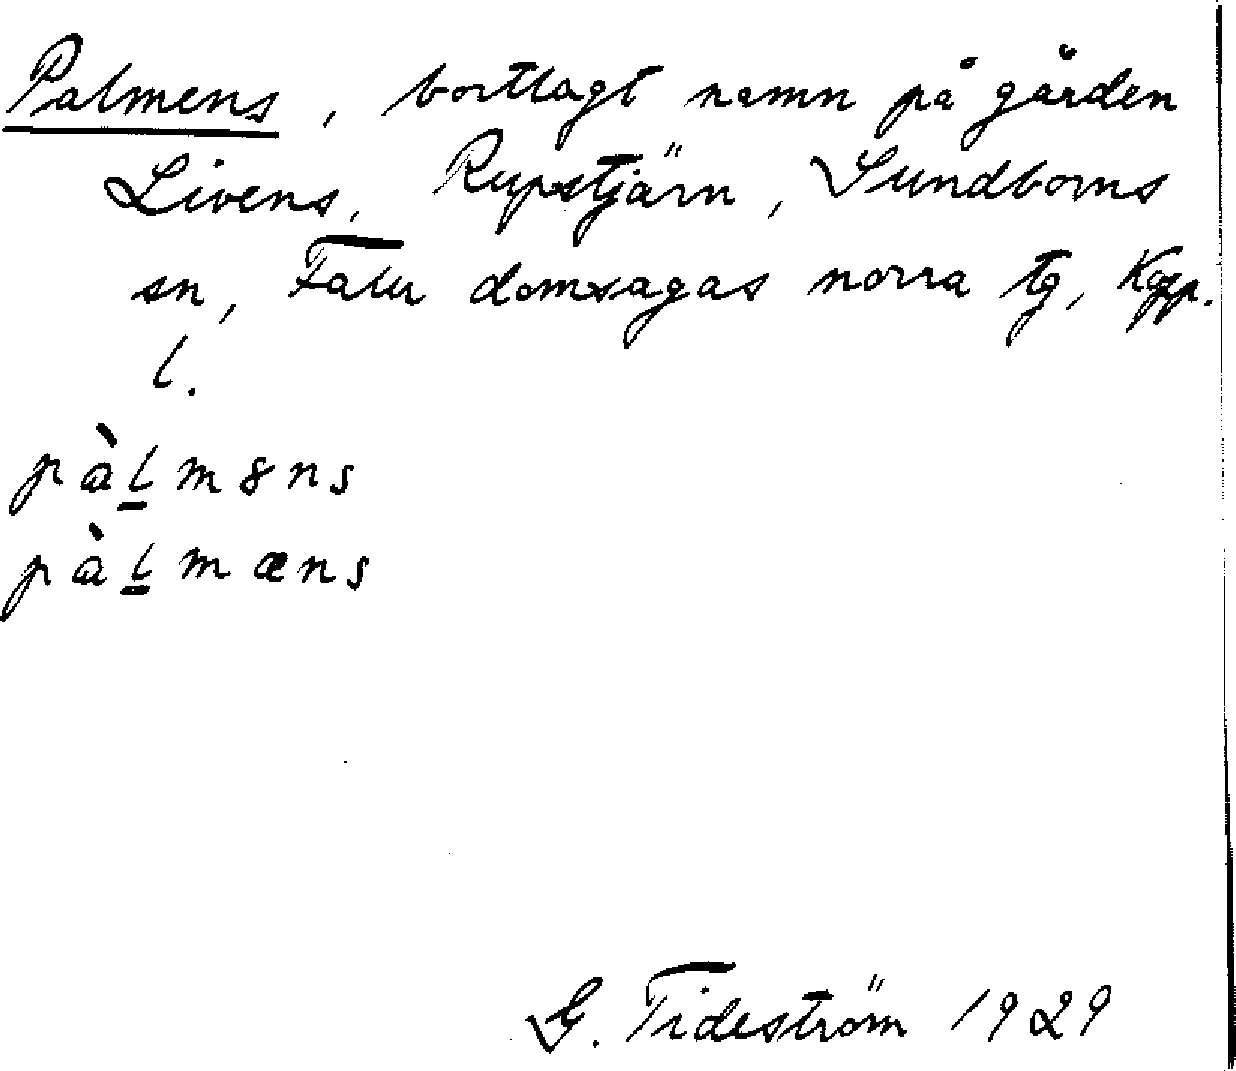 Palmens, bortlagt namn på gården
Livens, Rupstjärn, Sundborns
sn, Falu domsagas norra tg, Kopp.
l.
pàl̲məns
pàl̲mæns
G. Tideström 1929